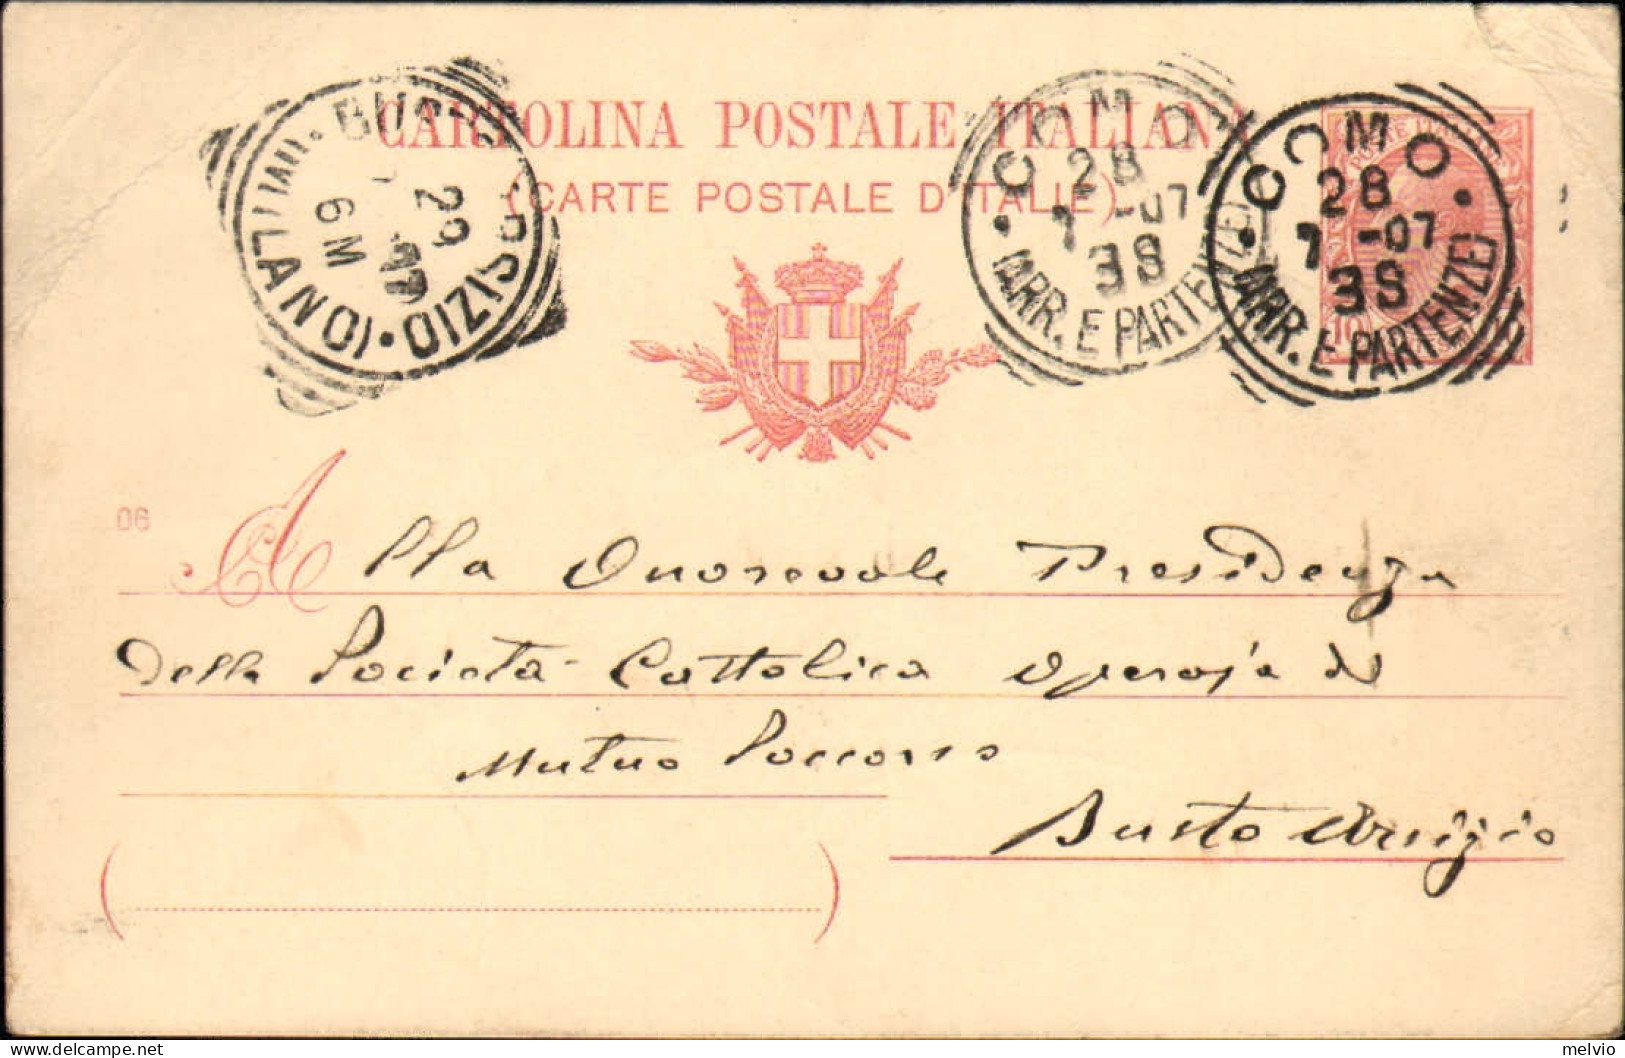 CARTOLINA POSTALE ITALIANA
(CARTE POSTALE D'ITALIE)
(MILANO) · BUSTO ARSIZIO ·
29
07
6 M
COMO
28
7 -07
3S
(ARR. E PARTENZE)
COMO
28
7 -07
3S
(ARR. E PARTENZE)
10
06
Alla Onorevole Presidenza
della Società Cattolica Operaja di
Mutuo Soccorso
Busto Arsizio
melvio